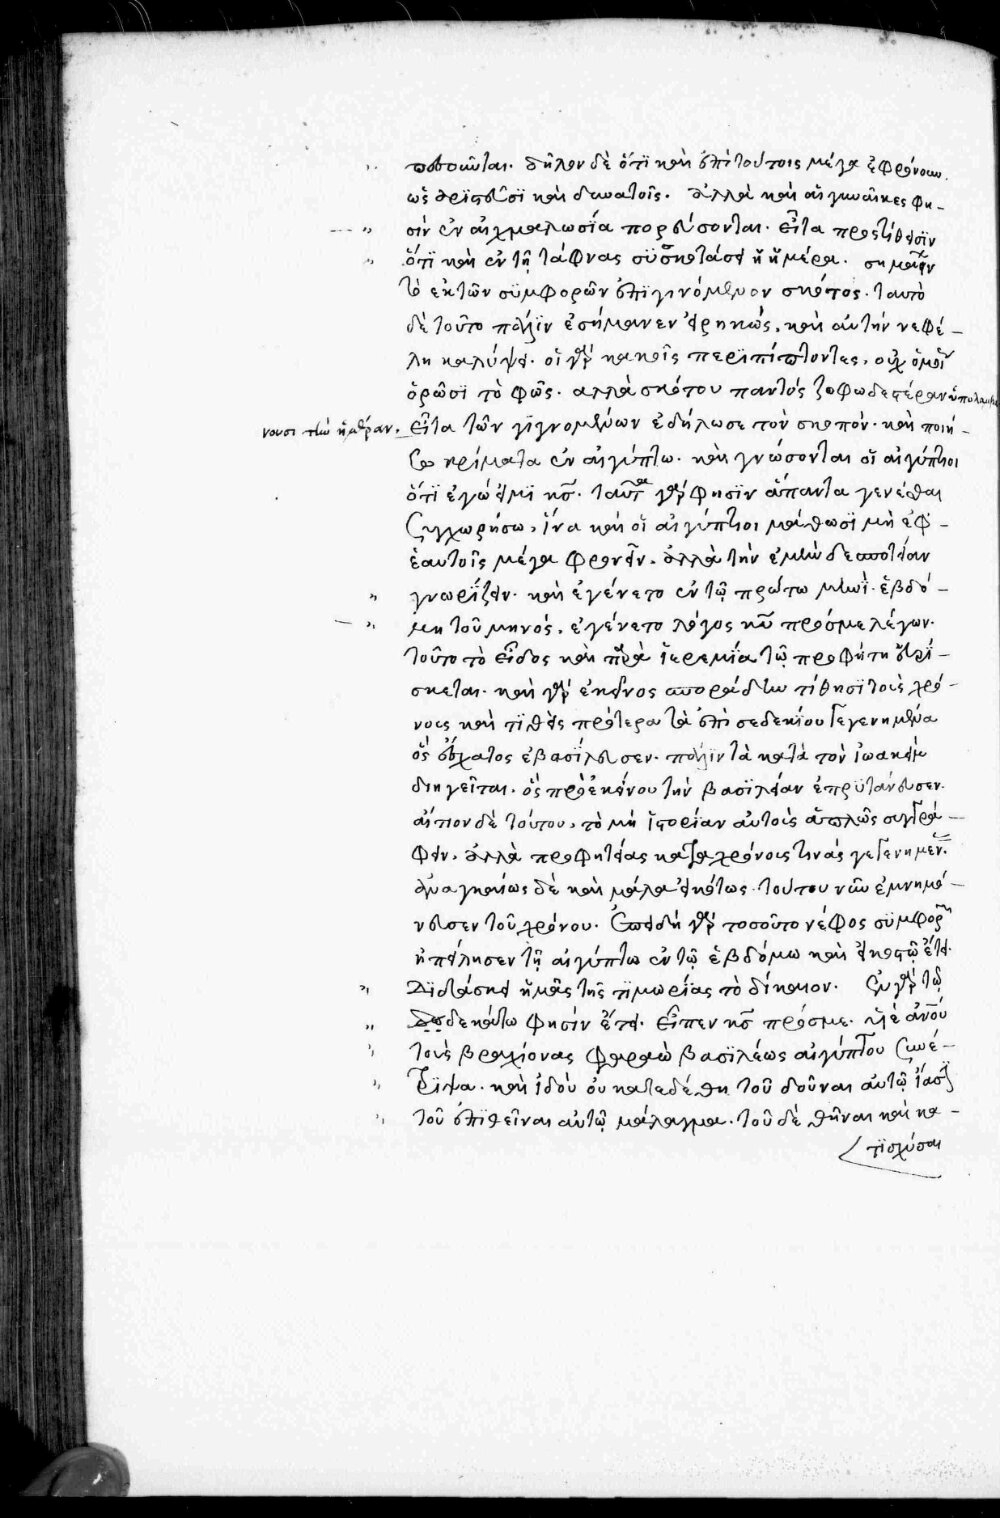 πεσοῦνται. δῆλον δὲ ὅτι καὶ ἐπὶ τούτοις μέγα ἐφρόνουν
ὡς ἀρίστοις καὶ δυνατοῖς. ἀλλὰ καὶ αἱ γυναῖκες φη-
σὶν ἐν αἰχμαλωσία πορεύσονται. εἶτα προστίθησιν
ὅτι καὶ ἐν τῆ τάφνας συσκοτάσει ἡ ἡμέρα. σημαῖνον
τὸ ἐκ τῶν συμφορῶν ἐπιγινόμενον σκότος. ταυτὸ
δὲ τοῦτο πάλιν ἐσήμανεν εἰρηκώς, καὶ αὐτὴν νεφέ-
λη καλύψει. οἱ γὰρ κακοῖς περιπίπτοντες, οὐχ ὁρῶσι
ὁρῶσι τὸ φῶς. ἀλλὰ σκότου παντὸς ζοφωδεστέραν ὑπολαμβά
νουσι τὴν ἡμέραν. εἶτα τῶν γιγνομένων ἐδήλωσε τὸν σκοπόν. καὶ ποιή-
σω κρίματα ἐν αἰγύπτω. καὶ γνώσονται οἱ αἰγύπτιοι
ὅτι ἐγώ εἰμι κς. ταῦτα γάρ φησιν ἅπαντα γενέσθαι
συγχωρήσω, ἵνα καὶ οἱ αἰγύπτιοι μάθωσι μὴ ἐφ-
ἑαυτοῖς μέγα φρονεῖν. ἀλλὰ τὴν ἐμὴν δεσποτείαν
γνωρίζειν. καὶ ἐγένετο ἐν τῶ πρώτω μηνὶ. ἑβδό-
μη τοῦ μηνός, ἐγένετο λόγος κυ πρός με λέγων.
τοῦτο τὸ εἶδος καὶ παρὰ ἱερεμία τῶ προφήτη εὑρί-
σκεται. καὶ γὰρ ἐκεῖνος σποράδην τίθησι τοὺς χρό-
νους καὶ τιθεὶς πρότερα τὰ ἐπὶ σεδεκίου γεγενημένα
ὃς ἔσχατος ἐβασίλευσεν. πάλιν τὰ κατὰ τὸν ἰωακεὶμ
διηγεῖται. ὃς πρὸ ἐκείνου τὴν βασιλείαν ἐπρυτάνευσεν.
αἴτιον δὲ τούτου, τὸ μὴ ἱστορίαν αὐτοὺς ἁπλῶς συγγρά-
φειν. ἀλλὰ προφητείας κατὰ χρόνους τινάς γεγενημέν.
ἀναγκαίως δὲ καὶ μάλα εἰκότως. τούτου νῦν ἐμνημό-
νευσεν τοῦ χρόνου. ἐπειδὴ γὰρ τοσοῦτο νέφος συμφορῶν
ἠπείλησεν τῆ αἰγύπτω ἐν τῶ ἑβδόμω καὶ εἰκοστῶ ἔτει.
διδάσκει ἡμᾶς τῆς τιμωρίας τὸ δίκαιον. ἐν γὰρ τῶ
δεκάτω φησὶν ἔτει. εἶπεν κς πρός με. υἱὲ ἀνου
τοὺς βραχίονας φαραὼ βασιλέως αἰγύπτου συνέ-
τριψα. καὶ ἰδοὺ οὐ κατεδέθη τοῦ δοῦναι αὐτῶ ἴασιν
τοῦ ἐπιθεῖναι αὐτῶ μάλαγμα. τοῦ δεθῆναι καὶ κα-
τισχύσαι